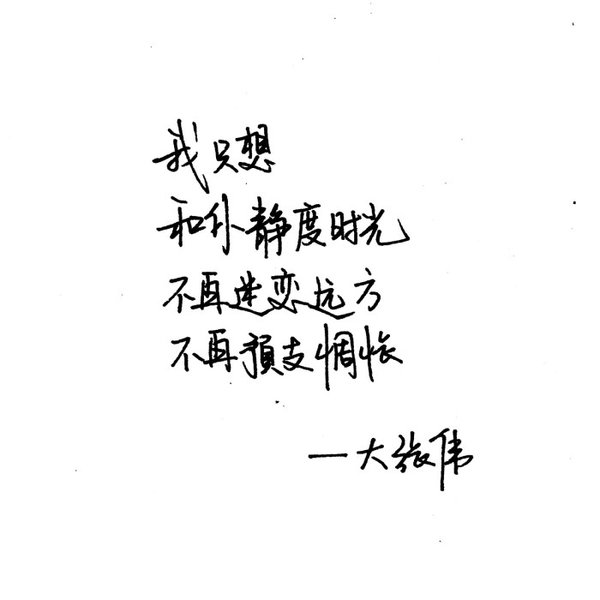 我只想
和你静度时光
不再迷恋远方
不再預支惆怅
—大张伟